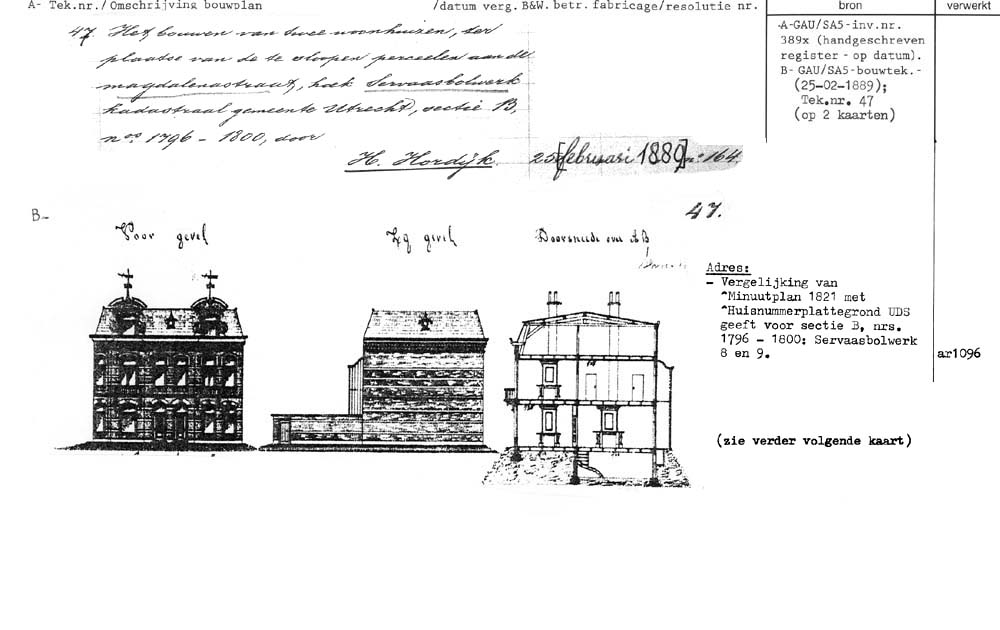 A- Tek.nr./Omschrijving bouwplan /datum verg. B&W. betr. fabricage/resolutie nr. bron verwerkt
47. Het bouwen van twee woonhuizen, ter
plaatse van de te sloopen perceelen aan de
magdalenastraat, hoek Servaasbolwerk
kadastraal gemeente Utrecht, sectie B,
nos. 1796 - 1800, door
H. Hordijk. 25 [februari 1889] no. 164.
A-GAU/SA5-inv.nr.
389x (handgeschreven
register - op datum).
B- GAU/SA5-bouwtek.-
(25-02-1889);
Tek.nr. 47
(op 2 kaarten)
B-
47.
Voor gevel
Zij gevel
Doorsnede over A B
Adres:
- Vergelijking van
^Minuutplan 1821 met
^Huisnummerplattegrond UDS
geeft voor sectie B, nrs.
1796 - 1800: Servaasbolwerk
8 en 9.
ar1096
(zie verder volgende kaart)